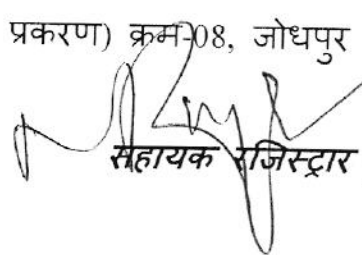 प्रकरण) क्रम-08, जोधपुर
सहायक रजिस्ट्रार